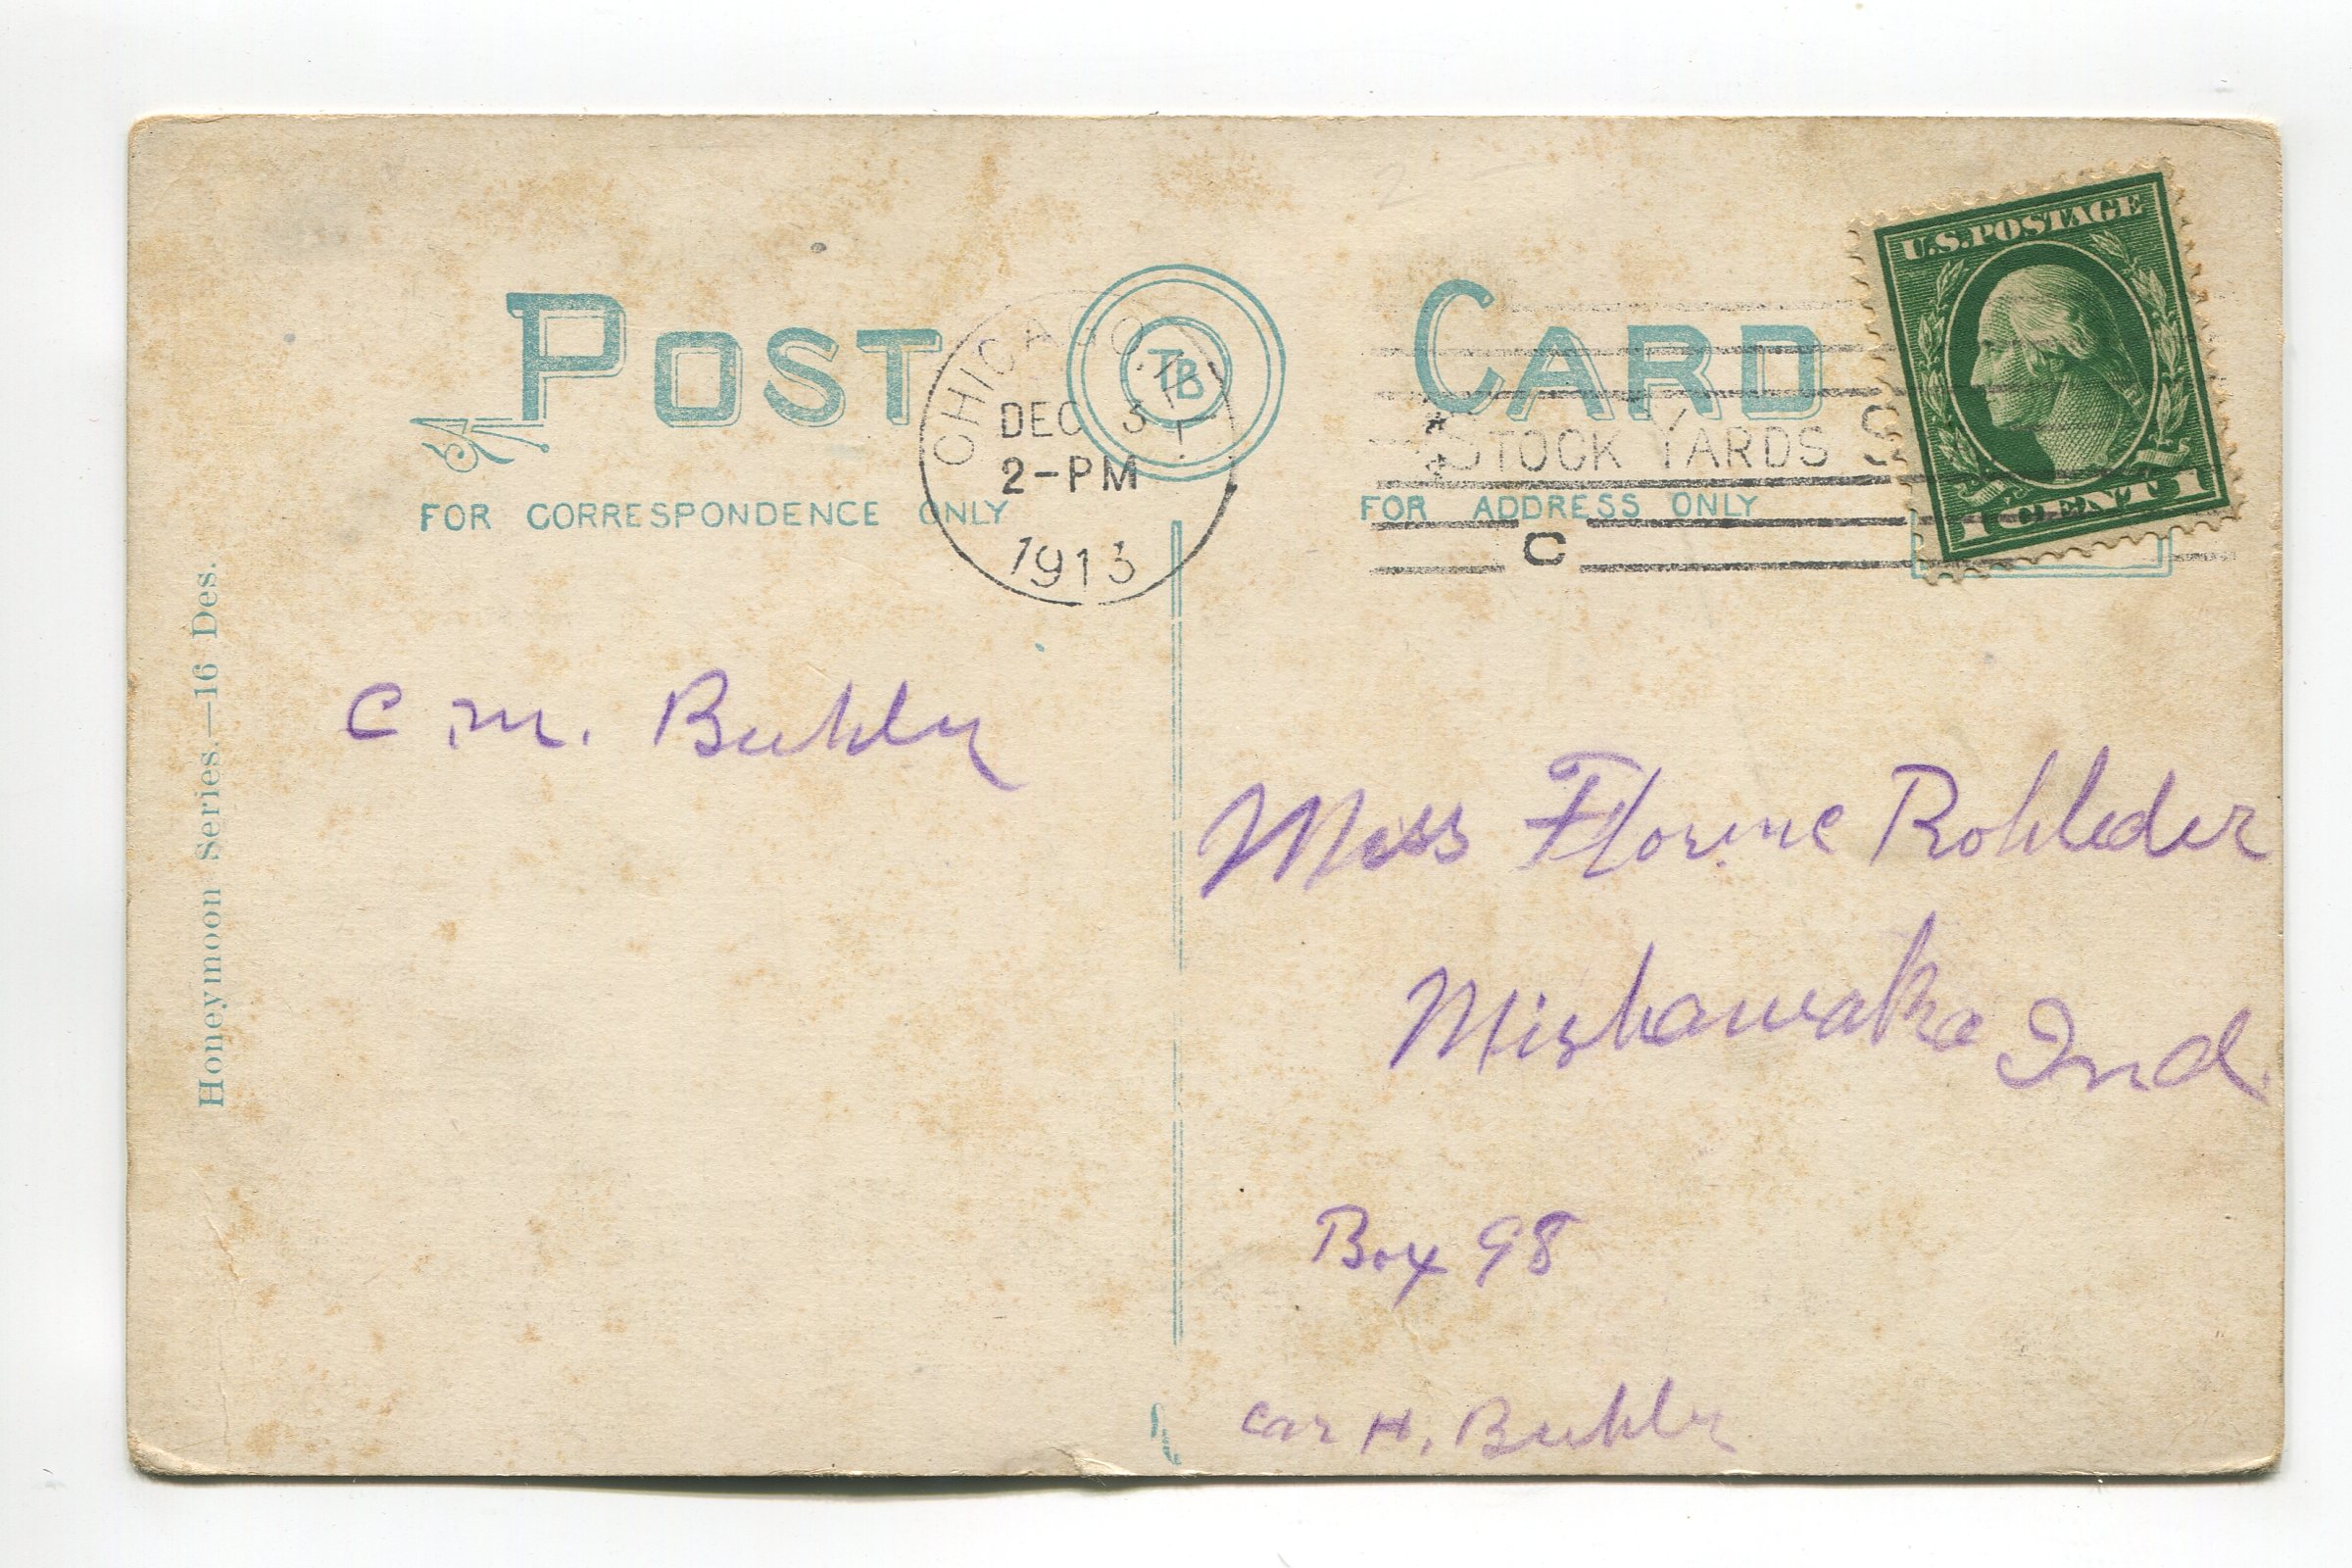 POST CARD
TB
U.S. POSTAGE
1 CENT 1
CHICAGO, ILL
DEC 3
2-PM
1913
STOCK YARDS S
C
FOR CORRESPONDENCE ONLY
FOR ADDRESS ONLY
Honeymoon Series.—16 Des.
C. M. Buhler
Miss Florene Rohleder
Mishawaka Ind.
Box 98
car H. Buhler